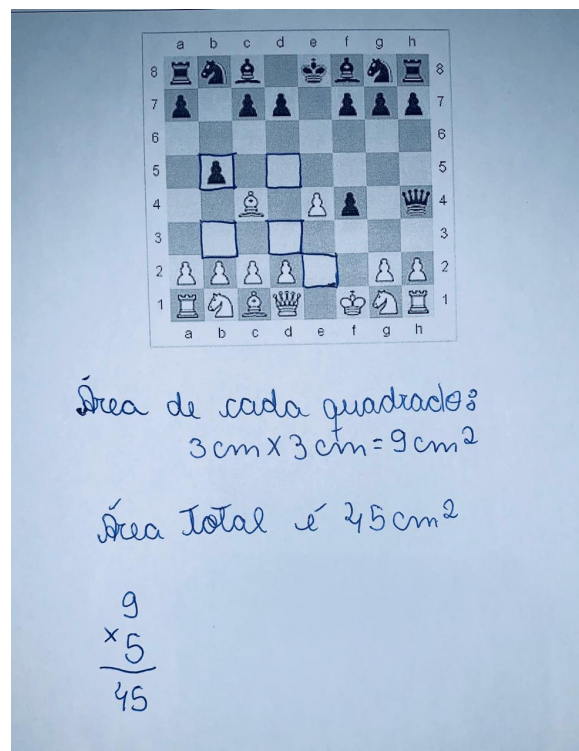 a b c d e f g h
8 8
7 7
6 6
5 5
4 4
3 3
2 2
1 1
a b c d e f g h
Área de cada quadrado:
3cm x 3cm = 9cm²
Área Total é 45cm²
9
x 5
45